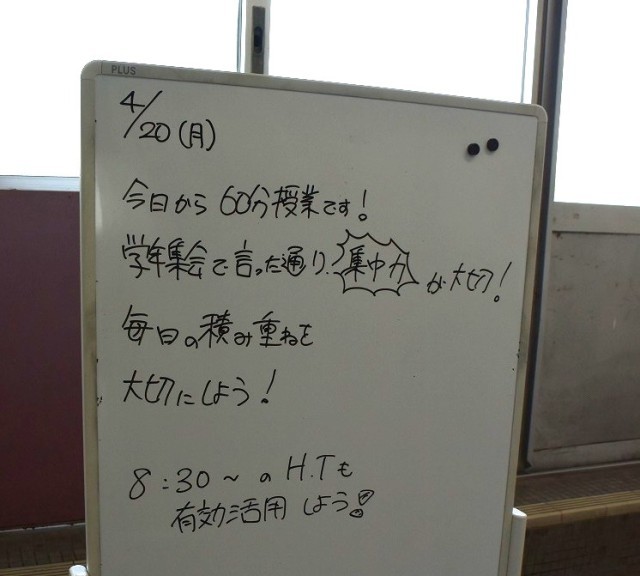 PLUS
4/20(月)
今日から60分授業です!
学年集会で言った通り、集中力が大切!
毎日の積み重ねを
大切にしよう!
8:30~のH.Tも
有効活用しよう!!